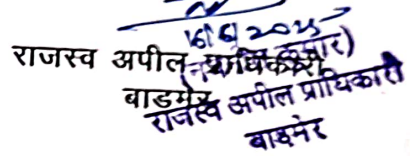 16/6/2025
राजस्व अपील प्राधिकारी
बाडमेर
राजस्व अपील प्राधिकारी
बाड़मेर